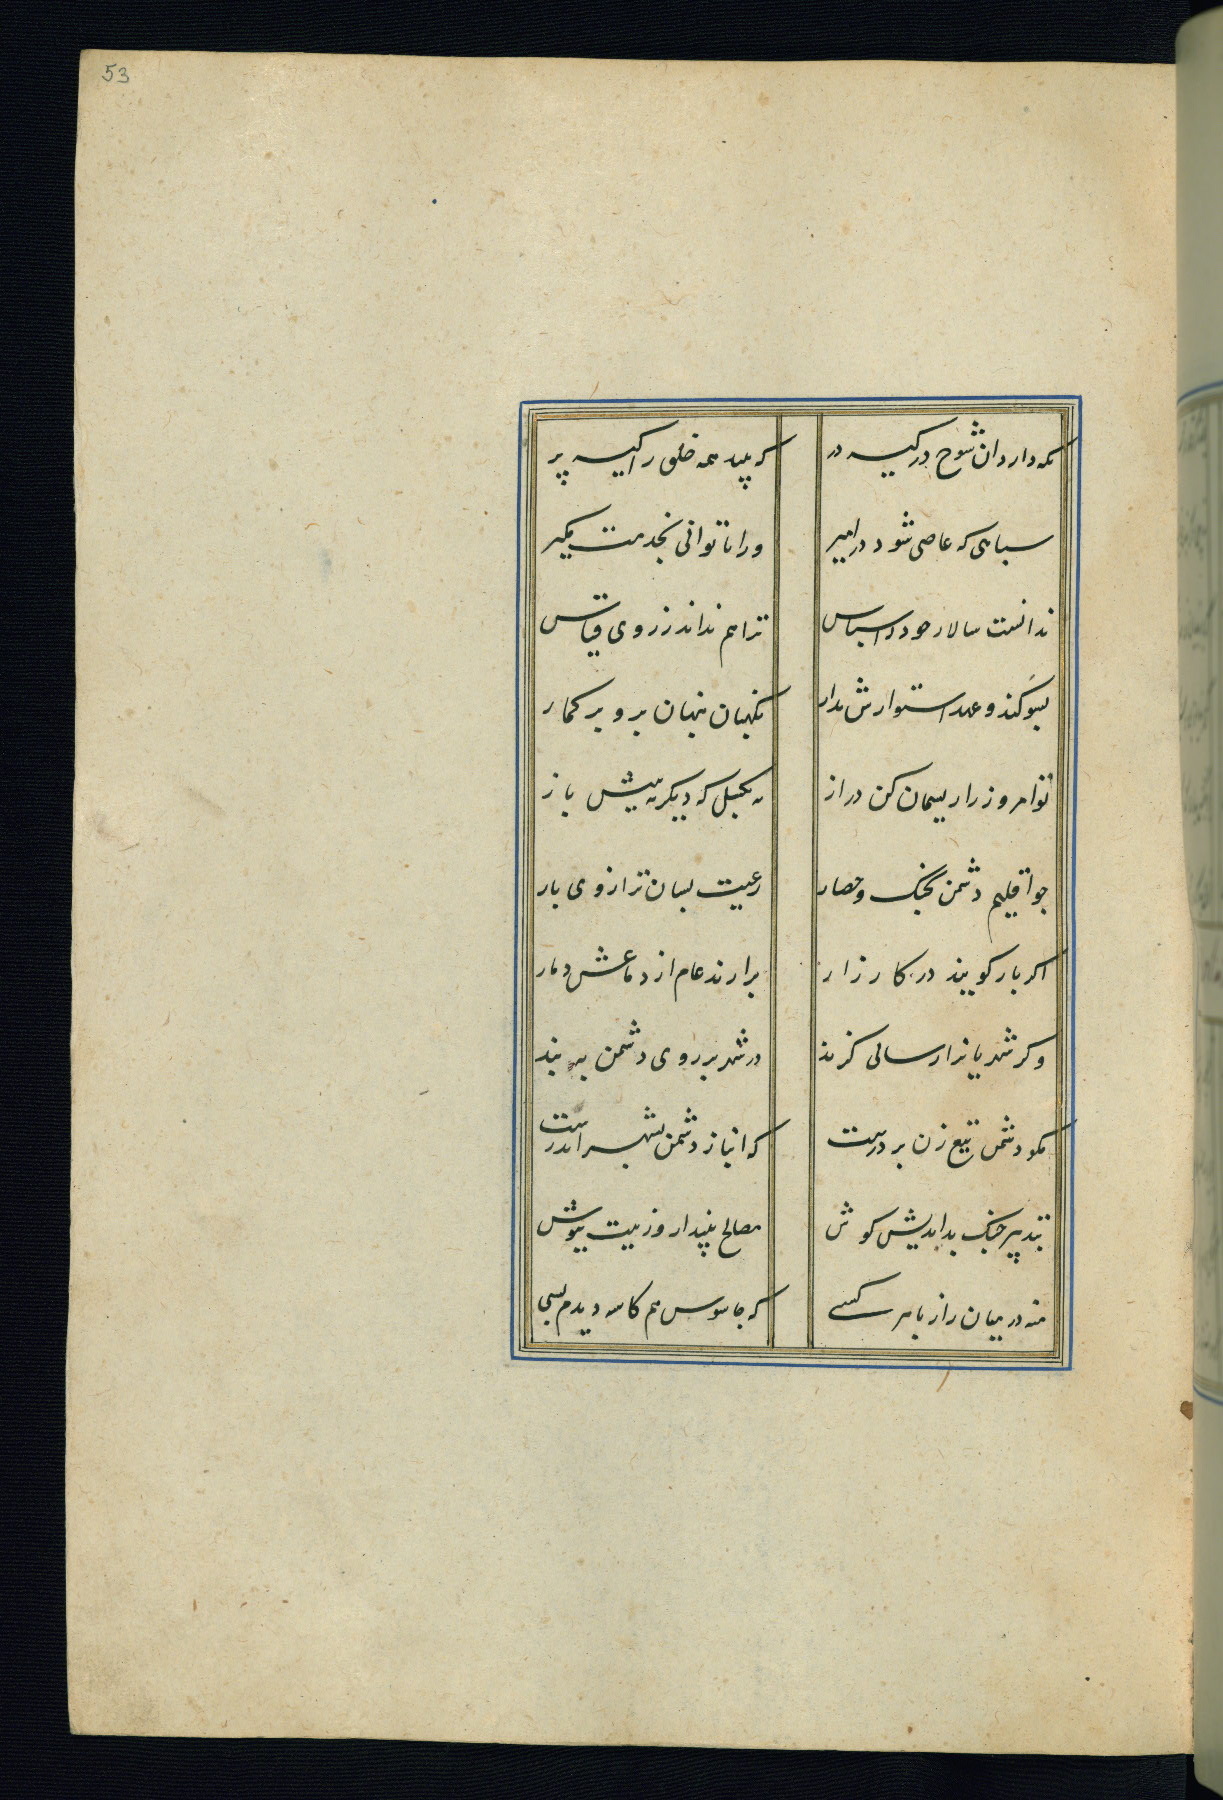 53
نکه دارد ان شوخ در کیسه در که بیند همه خلق را کیسه بر
سپاهی که عاصی شود در امیر ورا تا توانی بخدمت مکیر
ندانست سالار خود را سپاس ترا هم نداند ز روی قیاس
بسوکند و عهد استوارش مدار نکهبان پنهان برو بر کمار
نوامروز را ریسمان کن دراز نه بکسل که دیکر نه بینیش باز
جو اقلیم دشمن بجنک و حصار رعیت بسان ترازوی بار
اکر بار کویند در کارزار برارند عام از دماغش دمار
وکر شهریانرا رسانی کزند در شهر بر روی دشمن به بند
مکو دشمن تیغ زن بر درست که انباز دشمن بشهر اندرست
بتدبیر جنک بداندیش کوش مصالح بیندار و نیت بپوش
منه در میان راز با هر کسی که جاسوس هم کاسه دیدم بسی